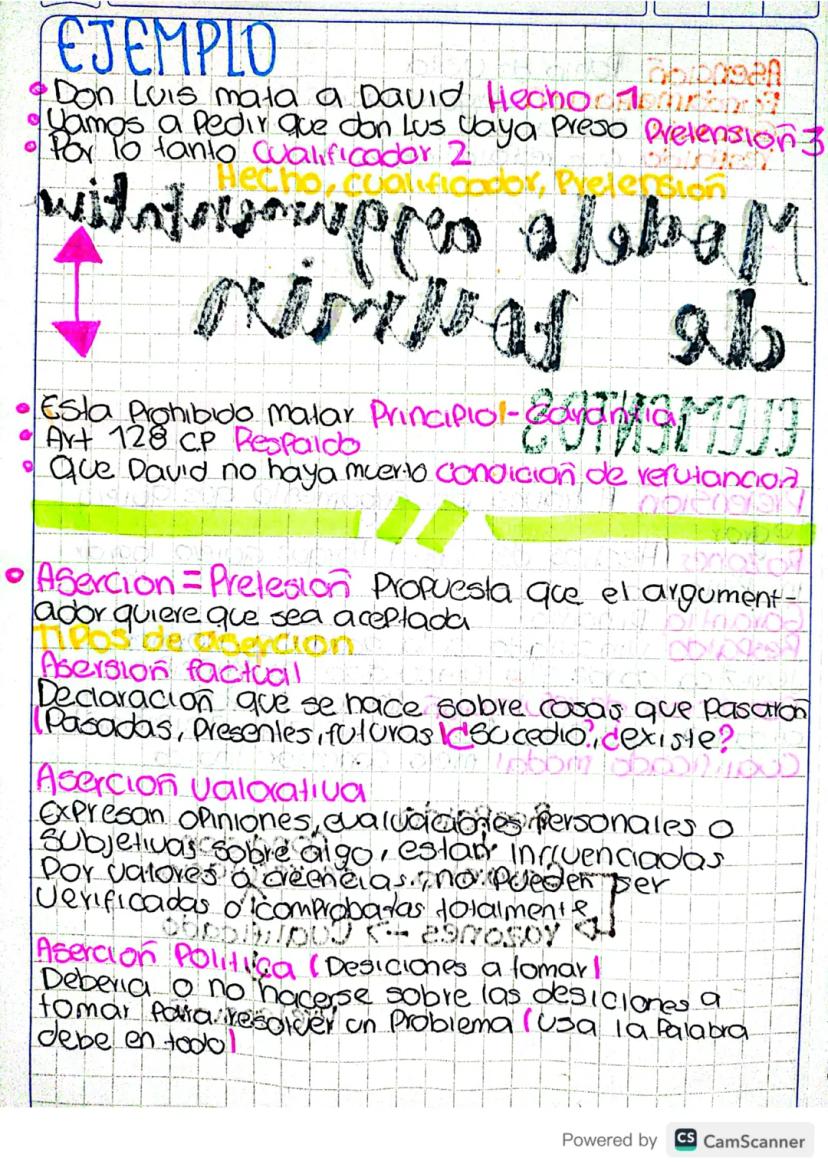 EJEMPLO
• Don Luis mata a David Hecho 1
• Vamos a Pedir que don Lus vaya Preso Pretensión 3
• Por lo tanto Cualificador 2
Hecho, cualificador, Pretensión
Modelo
de toulmin
ELEMENTOS
• Esta Prohibido matar Principio - Garantia
• Art 128 CP Respaldo
• Que David no haya muerto condición de refutancion
• Asercion = Pretesión Propuesta que el argument-
ador quiere que sea aceptada
Tipos de asercion
Asersión factual
Declaración que se hace sobre cosas que pasaron
(Pasadas, Presentes, futuras) ¿Sucedio?, ¿existe?
Aserción valorativa
Expresan opiniones, evaluaciones personales o
subjetivas sobre algo, estan influenciadas
por valores o creencias, no pueden ser
verificadas o comprobadas totalmente
razones -> cualificado
Aserción Política (Desiciones a tomar)
Deberia o no hacerse sobre las desiciones a
tomar para resolver un Problema (usa la Palabra
debe en todo)
Powered by CS CamScanner